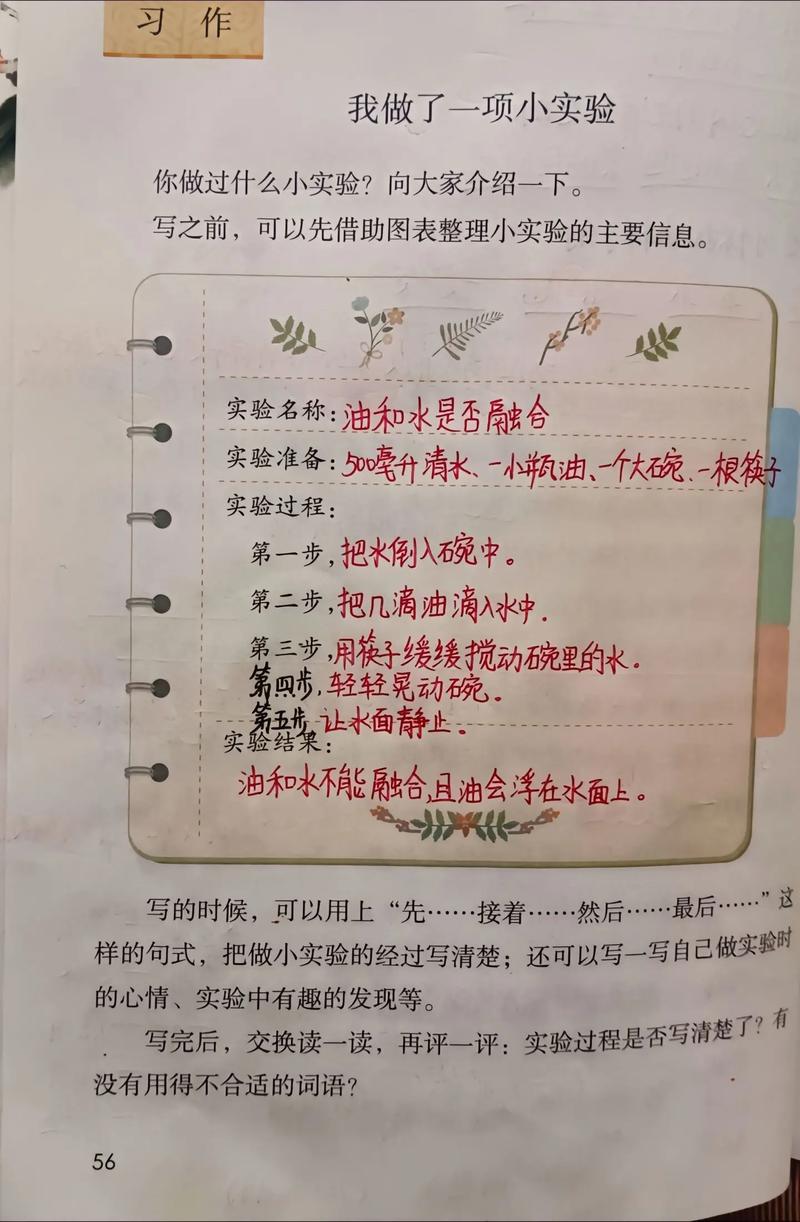 习 作
我做了一项小实验
你做过什么小实验？向大家介绍一下。
写之前，可以先借助图表整理小实验的主要信息。
实验名称：油和水是否融合
实验准备：500毫升清水、一小瓶油、一个大碗、一根筷子
实验过程：
第一步，把水倒入碗中。
第二步，把几滴油滴入水中．
第三步，用筷子缓缓搅动碗里的水。
第四步，轻轻晃动碗。
第五步 让水面静止。
实验结果：
油和水不能融合，且油会浮在水面上。
写的时候，可以用上“先……接着……然后……最后……”这
样的句式，把做小实验的经过写清楚；还可以写一写自己做实验时
的心情、实验中有趣的发现等。
写完后，交换读一读，再评一评：实验过程是否写清楚了？有
没有用得不合适的词语？
56